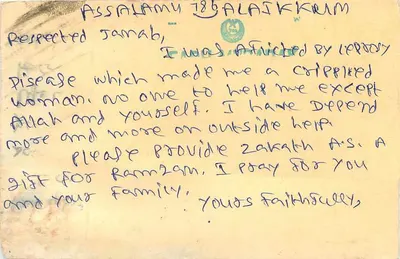 ASSALAMU 786 ALAIKKUM
Respected Janab,
I was aFFicted BY LEPROSY
Disease which made me a crippled
woman. no one to help me except
Allah and yourself. I have Depend
more and more on outside help.
Please provide zakath A.S. A
gift for Ramzan. I pray for you
and your Family.
yours Faithfully,